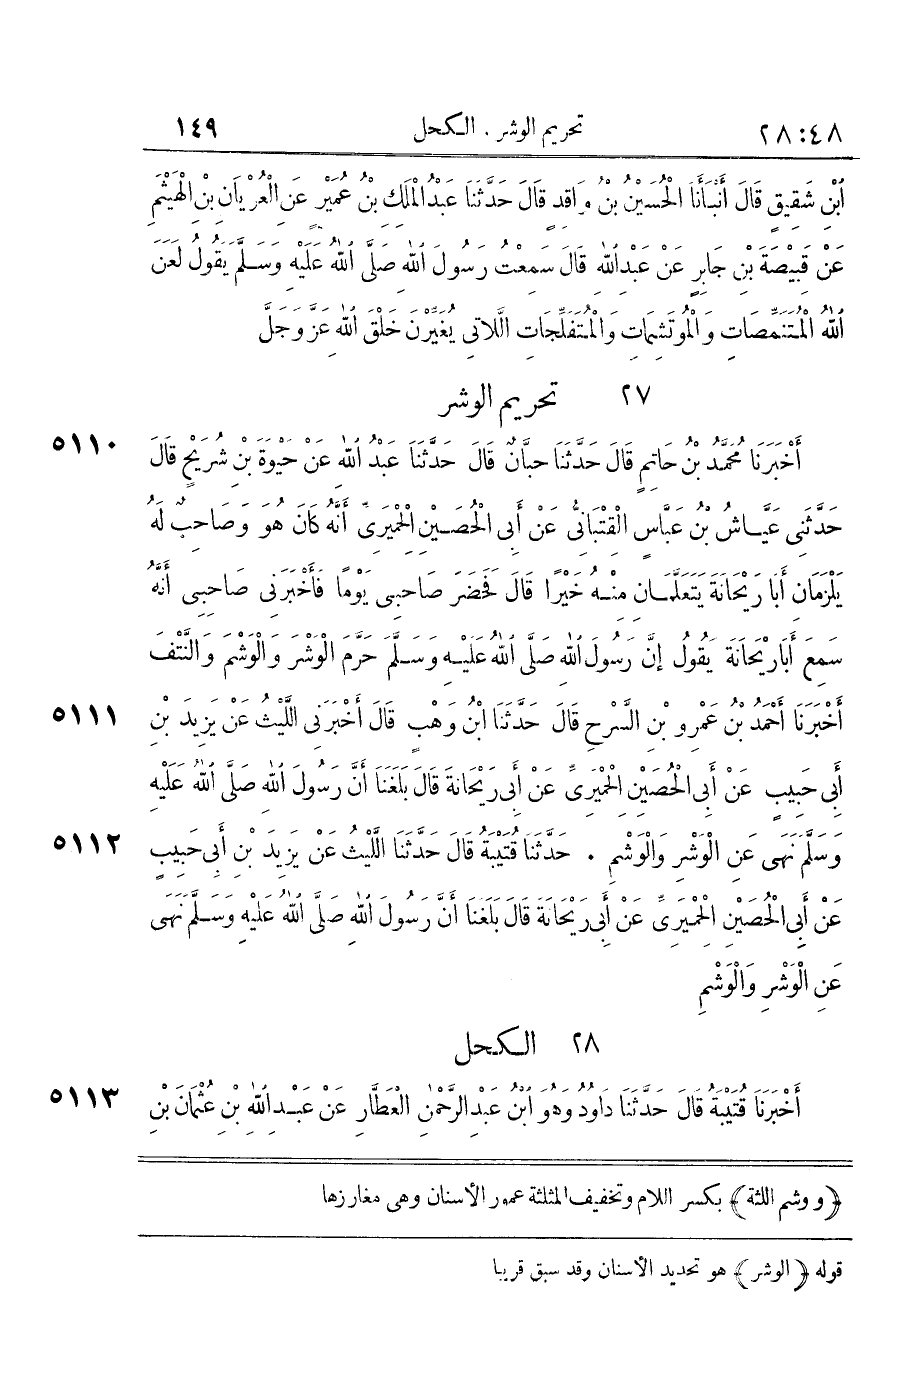 ٢٨:٤٨ تحريم الوشر . الكحل ١٤٩
ابْنِ شَقِيقٍ قَالَ أَنْبَأَنَا الْحُسَيْنُ بْنُ وَاقِدٍ قَالَ حَدَّثَنَا عَبْدُ الْمَلِكِ بْنُ عُمَيْرٍ عَنِ الْعُرْيَانِ بْنِ الْهَيْثَمِ
عَنْ قَبِيصَةَ بْنِ جَابِرٍ عَنْ عَبْدِ اللهِ قَالَ سَمِعْتُ رَسُولَ اللهِ صَلَّى اللهُ عَلَيْهِ وَسَلَّمَ يَقُولُ لَعَنَ
اللهُ الْمُتَنَمِّصَاتِ وَالْمُوتَشِمَاتِ وَالْمُتَفَلِّجَاتِ اللَّاتِي يُغَيِّرْنَ خَلْقَ اللهِ عَزَّ وَجَلَّ
٢٧ تحريم الوشر
٥١١٠ أَخْبَرَنَا مُحَمَّدُ بْنُ حَاتِمٍ قَالَ حَدَّثَنَا حِبَّانُ قَالَ حَدَّثَنَا عَبْدُ اللهِ عَنْ حَيْوَةَ بْنِ شُرَيْحٍ قَالَ
حَدَّثَنِي عَيَّاشُ بْنُ عَبَّاسٍ الْقِتْبَانِيُّ عَنْ أَبِي الْحُصَيْنِ الْحِمْيَرِيِّ أَنَّهُ كَانَ هُوَ وَصَاحِبٌ لَهُ
يَلْزَمَانِ أَبَا رَيْحَانَةَ يَتَعَلَّمَانِ مِنْهُ خَيْرًا قَالَ فَحَضَرَ صَاحِبِي يَوْمًا فَأَخْبَرَنِي صَاحِبِي أَنَّهُ
سَمِعَ أَبَا رَيْحَانَةَ يَقُولُ إِنَّ رَسُولَ اللهِ صَلَّى اللهُ عَلَيْهِ وَسَلَّمَ حَرَّمَ الْوَشْرَ وَالْوَشْمَ وَالنَّتْفَ
٥١١١ أَخْبَرَنَا أَحْمَدُ بْنُ عَمْرِو بْنِ السَّرْحِ قَالَ حَدَّثَنَا ابْنُ وَهْبٍ قَالَ أَخْبَرَنِي اللَّيْثُ عَنْ يَزِيدَ بْنِ
أَبِي حَبِيبٍ عَنْ أَبِي الْحُصَيْنِ الْحِمْيَرِيِّ عَنْ أَبِي رَيْحَانَةَ قَالَ بَلَغَنَا أَنَّ رَسُولَ اللهِ صَلَّى اللهُ عَلَيْهِ
٥١١٢ وَسَلَّمَ نَهَى عَنِ الْوَشْرِ وَالْوَشْمِ . حَدَّثَنَا قُتَيْبَةُ قَالَ حَدَّثَنَا اللَّيْثُ عَنْ يَزِيدَ بْنِ أَبِي حَبِيبٍ
عَنْ أَبِي الْحُصَيْنِ الْحِمْيَرِيِّ عَنْ أَبِي رَيْحَانَةَ قَالَ بَلَغَنَا أَنَّ رَسُولَ اللهِ صَلَّى اللهُ عَلَيْهِ وَسَلَّمَ نَهَى
عَنِ الْوَشْرِ وَالْوَشْمِ
٢٨ الكحل
٥١١٣ أَخْبَرَنَا قُتَيْبَةُ قَالَ حَدَّثَنَا دَاوُدُ وَهُوَ ابْنُ عَبْدِ الرَّحْمٰنِ الْعَطَّارِ عَنْ عَبْدِ اللهِ بْنِ عُثْمَانَ بْنِ
﴿ووشم اللثة﴾ بكسر اللام وتخفيف المثلثة عمور الأسنان وهى مغارزها
قوله ﴿الوشر﴾ هو تحديد الأسنان وقد سبق قريبا